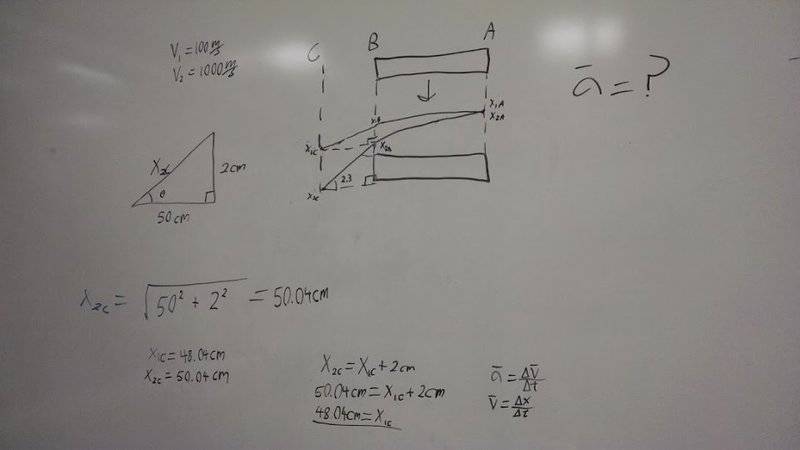 V₁ = 100 m/s
V₂ = 1000 m/s
C
B
A
a̅ = ?
X₁A
X₂A
X₁C
X₂B
2.3
X₂C
X₂C
2cm
θ
50cm
X₂C = √(50² + 2²) = 50.04cm
X₁C = 48.04cm
X₂C = 50.04cm
X₂C = X₁C + 2cm
50.04cm = X₁C + 2cm
48.04cm = X₁C
a̅ = Δv̅/Δt
v̅ = Δx/Δt